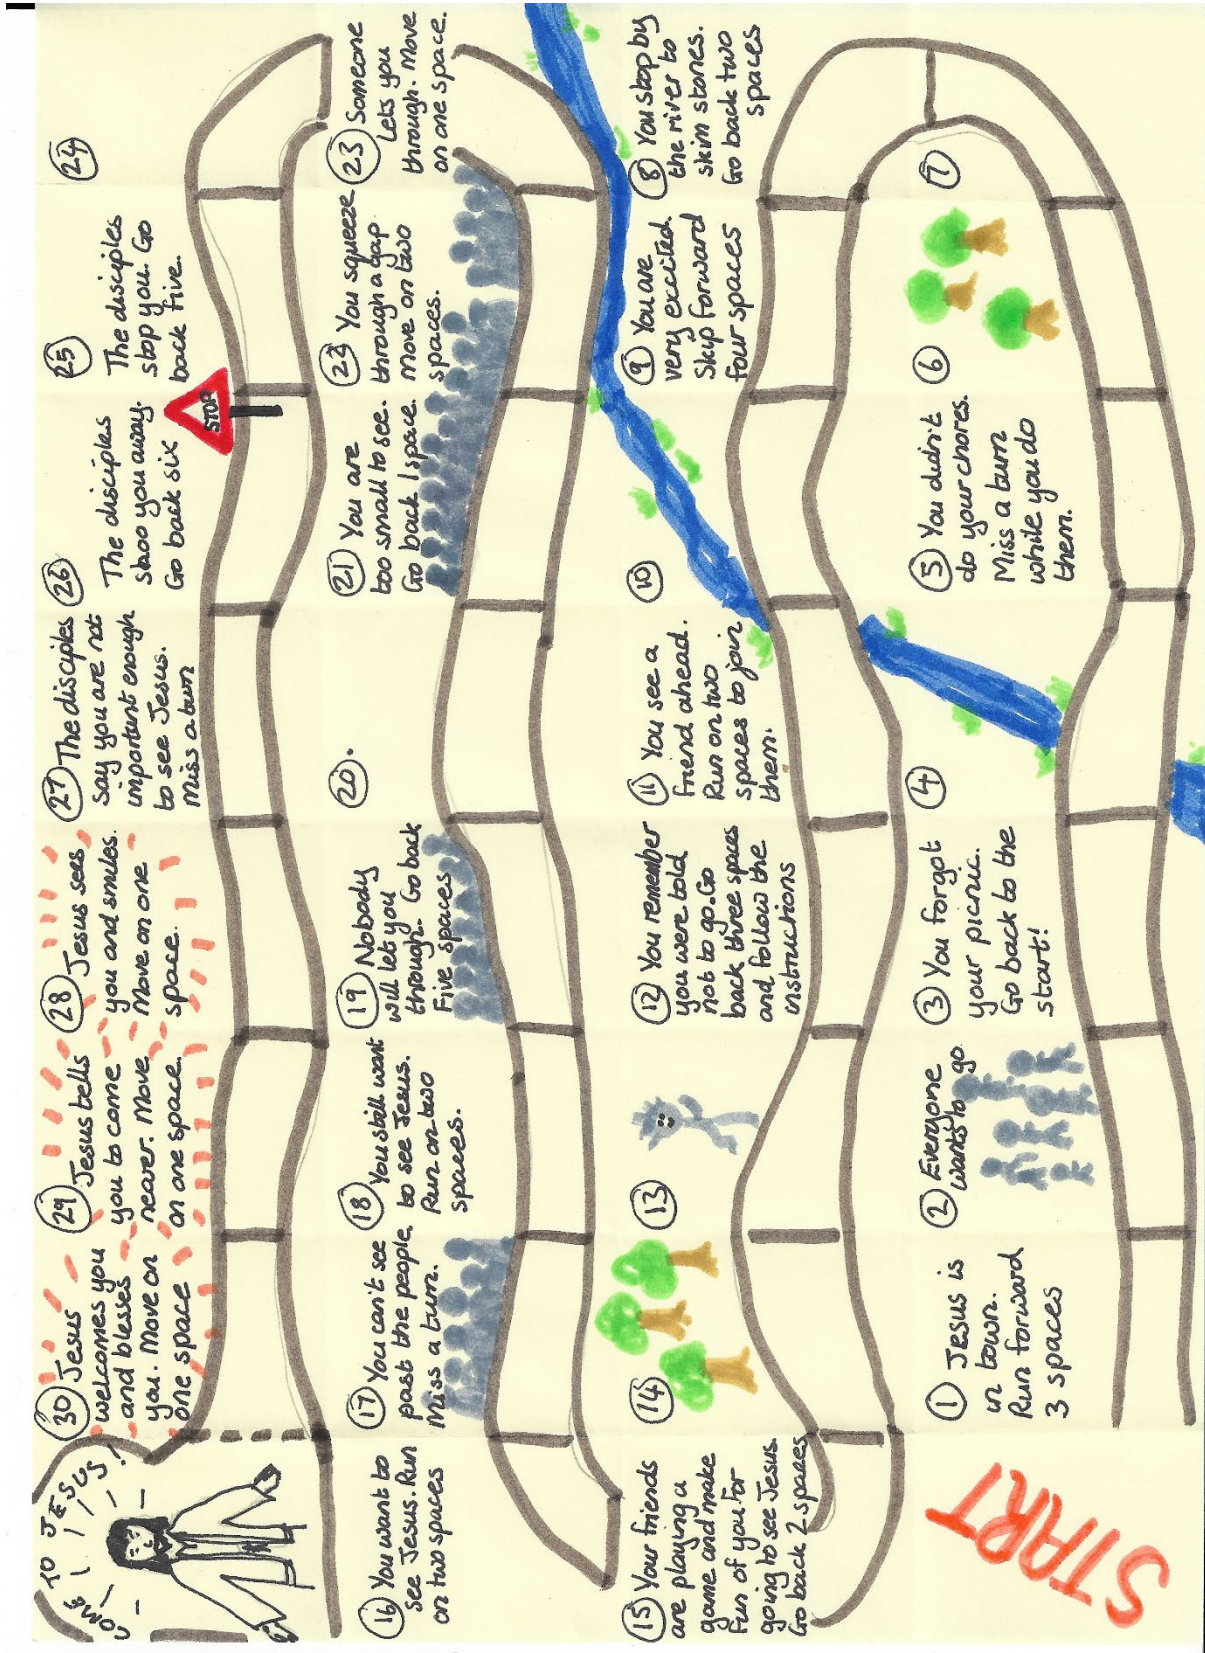 START
① Jesus is
in town.
Run forward
3 spaces
② Everyone
wants to go
③ You forgot
your picnic.
Go back to the
start!
④
⑤ You didn't
do your chores.
Miss a turn
while you do
them.
⑥
⑦
⑧ You stop by
the river to
skim stones.
Go back two
spaces
⑨ You are
very excited.
Skip forward
four spaces
⑩
⑪ You see a
friend ahead.
Run on two
spaces to join
them.
⑫ You remember
you were told
not to go. Go
back three spaces
and follow the
instructions
⑬
⑭
⑮ Your friends
are playing a
game and make
fun of you for
going to see Jesus.
Go back 2 spaces
⑯ You want to
see Jesus. Run
on two spaces
⑰ You can't see
past the people.
Miss a turn.
⑱ You still want
to see Jesus.
Run on two
spaces.
⑲ Nobody
will let you
through. Go back
Five spaces
⑳.
㉑ You are
too small to see.
Go back 1 space.
㉒ You squeeze
through a gap
move on two
spaces.
㉓ Someone
Lets you
through. Move
on one space.
㉔
㉕
The disciples
stop you. Go
back five.
STOP
㉖
The disciples
shoo you away.
Go back six
㉗ The disciples
say you are not
important enough
to see Jesus.
Miss a turn
㉘ Jesus sees
you and smiles.
Move on one
space.
㉙ Jesus tells
you to come
nearer. Move
on one space.
㉚ Jesus
welcomes you
and blesses
you. Move on
one space
COME TO JESUS!